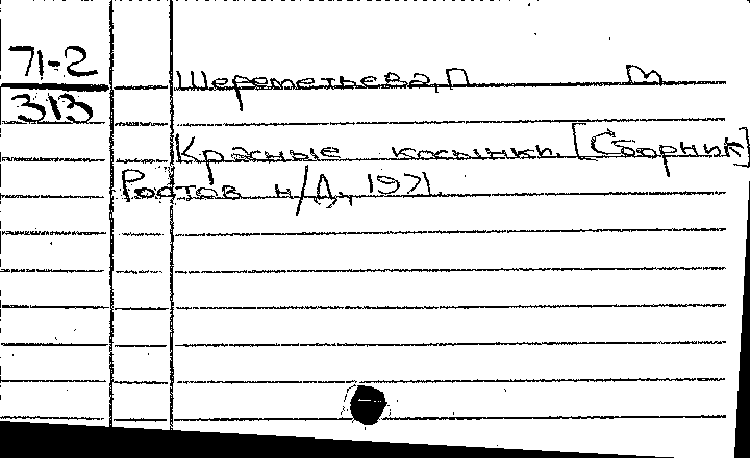 71-2
313
Шереметьева, П М
Красные косынки. [Сборник]
Ростов н/Д., 1971.